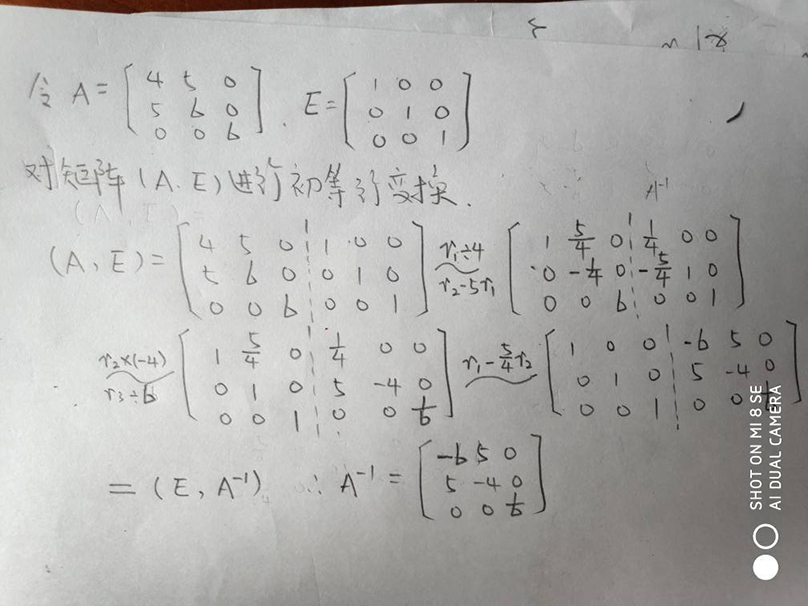 令 A = [4 5 0; 5 6 0; 0 0 6]. E = [1 0 0; 0 1 0; 0 0 1]
对矩阵(A.E)进行初等行变换. A⁻¹
(A, E) = [4 5 0 ¦ 1 0 0; 5 6 0 ¦ 0 1 0; 0 0 6 ¦ 0 0 1] r₁÷4 ~ r₂-5r₁ [1 5/4 0 ¦ 1/4 0 0; 0 -1/4 0 ¦ -5/4 1 0; 0 0 6 ¦ 0 0 1]
r₂×(-4) ~ r₃÷6 [1 5/4 0 ¦ 1/4 0 0; 0 1 0 ¦ 5 -4 0; 0 0 1 ¦ 0 0 1/6] r₁-5/4r₂ ~ [1 0 0 ¦ -6 5 0; 0 1 0 ¦ 5 -4 0; 0 0 1 ¦ 0 0 1/6]
= (E, A⁻¹) ∴ A⁻¹ = [-6 5 0; 5 -4 0; 0 0 1/6]
SHOT ON MI 8 SE
AI DUAL CAMERA